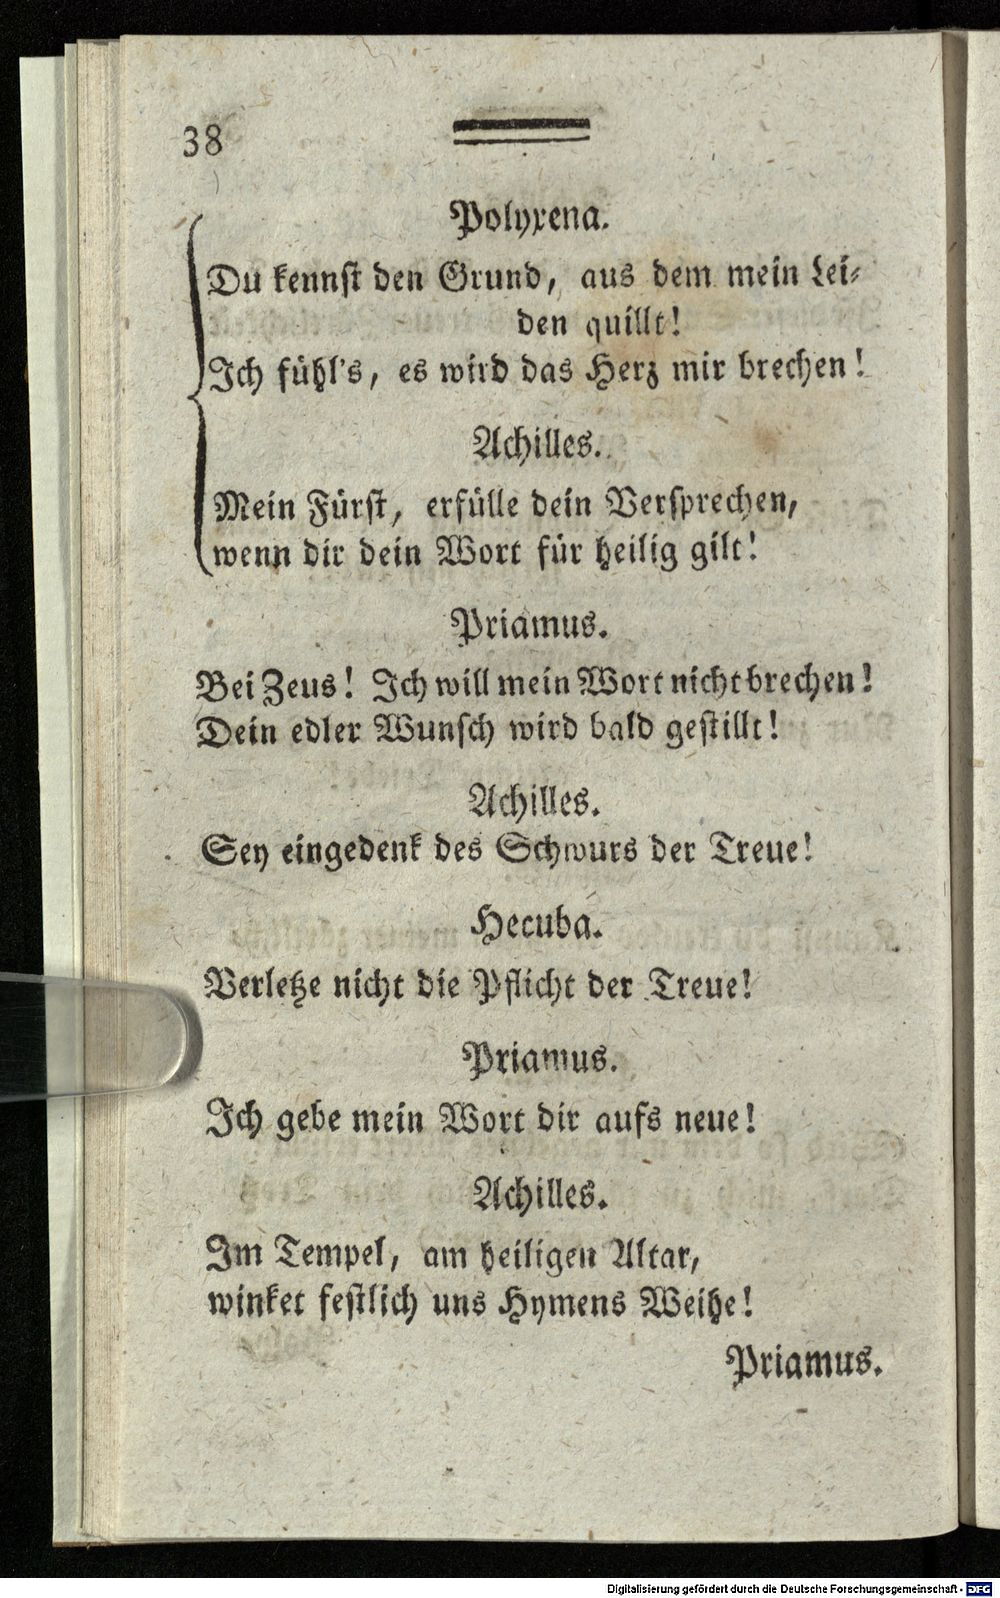 38
Polyxena.
Du kennst den Grund, aus dem mein Lei-
den quillt!
Ich fühl's, es wird das Herz mir brechen!
Achilles.
Mein Fürst, erfülle dein Versprechen,
wenn dir dein Wort für heilig gilt!
Priamus.
Bei Zeus! Ich will mein Wort nicht brechen!
Dein edler Wunsch wird bald gestillt!
Achilles.
Sey eingedenk des Schwurs der Treue!
Hecuba.
Verletze nicht die Pflicht der Treue!
Priamus.
Ich gebe mein Wort dir aufs neue!
Achilles.
Im Tempel, am heiligen Altar,
winket festlich uns Hymens Weihe!
Priamus.
Digitalisierung gefördert durch die Deutsche Forschungsgemeinschaft - DFG